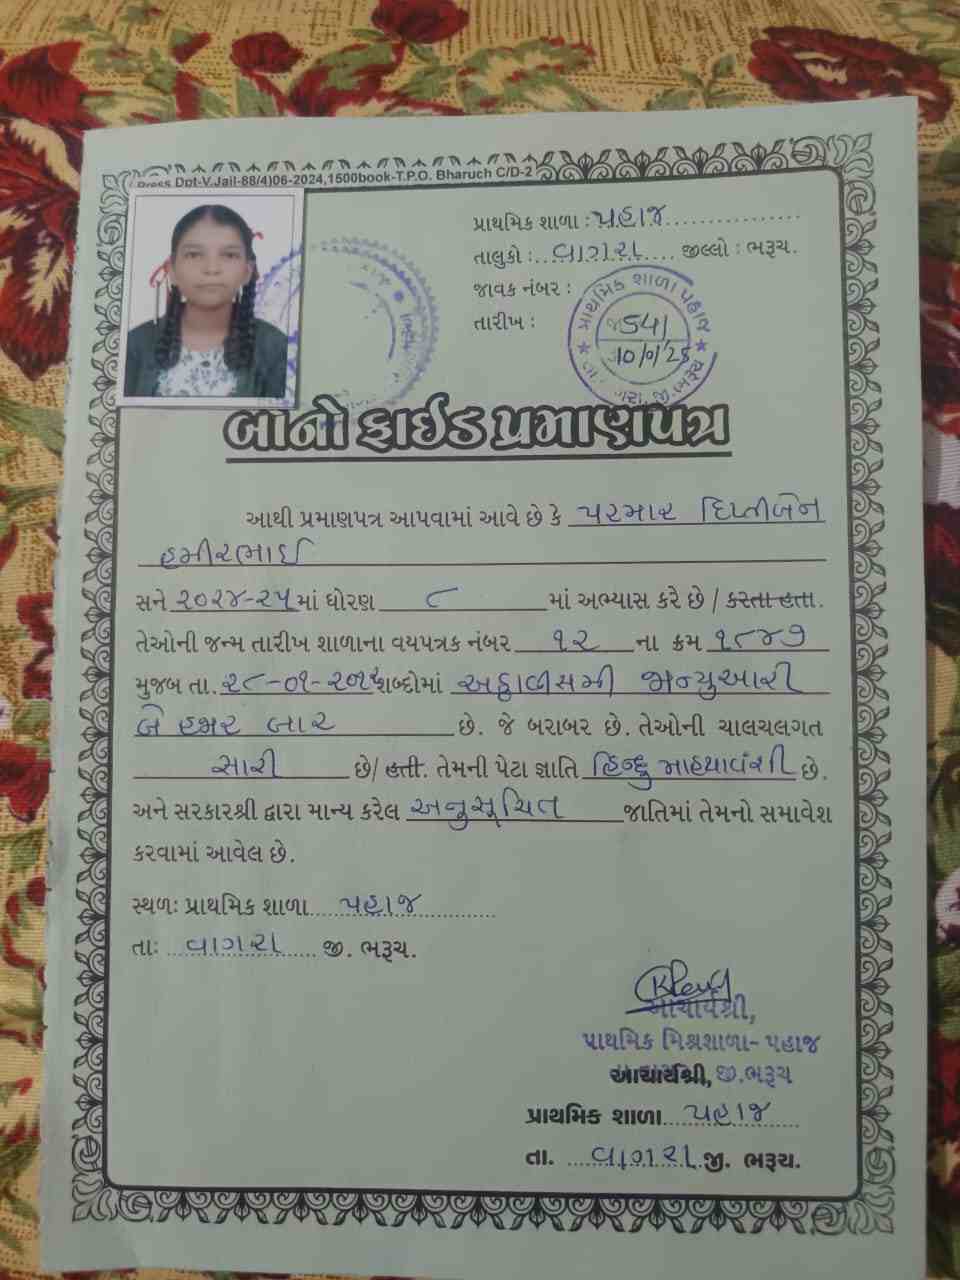 Press Dpt-V.Jail-88/4)06-2024,1500book-T.P.O. Bharuch C/D-2
પ્રાથમિક શાળા : પહાજ
તાલુકો : વાગરા જીલ્લો : ભરૂચ.
જાવક નંબર :
તારીખ :
પ્રાથમિક શાળા પહાજ
541
જી.ભરૂચ
બોનો ફાઈડ પ્રમાણપત્ર
આથી પ્રમાણપત્ર આપવામાં આવે છે કે પરમાર દિપ્તીબેન
હમીરભાઈ
સને ૨૦૨૪-૨૫માં ધોરણ ૮ માં અભ્યાસ કરે છે / કરતા હતા.
તેઓની જન્મ તારીખ શાળાના વયપત્રક નંબર ૧૨ ના ક્રમ ૧૮૪૭
મુજબ તા. ૨૮-૦૧-૨૦૧૨ શબ્દોમાં અઠ્ઠાવીસમી જાન્યુઆરી
બે હજાર બાર છે. જે બરાબર છે. તેઓની ચાલચલગત
સારી છે/ હતી. તેમની પેટા જ્ઞાતિ હિન્દુ માહ્યાવંશી છે.
અને સરકારશ્રી દ્વારા માન્ય કરેલ અનુસૂચિત જાતિમાં તેમનો સમાવેશ
કરવામાં આવેલ છે.
સ્થળઃ પ્રાથમિક શાળા પહાજ
તાઃ વાગરા જી. ભરૂચ.
આચાર્યશ્રી,
પ્રાથમિક મિશ્રશાળા- પહાજ
આચાર્યશ્રી, જી.ભરૂચ
પ્રાથમિક શાળા પહાજ
તા. વાગરા જી. ભરૂચ.